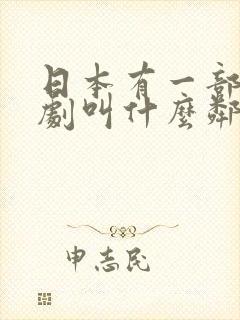 日本有一部
劇叫什麼鄰
申志民